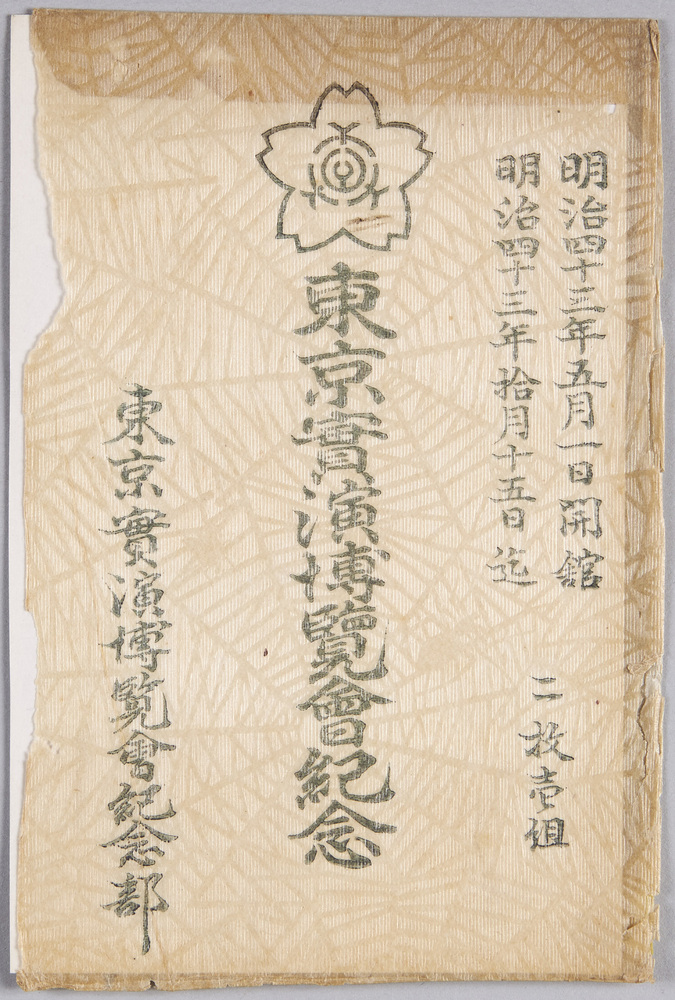 明治四十三年五月一日開館
明治四十三年拾月十五日迄
二枚壱組
東京實演博覽會紀念
東京實演博覧會紀念部